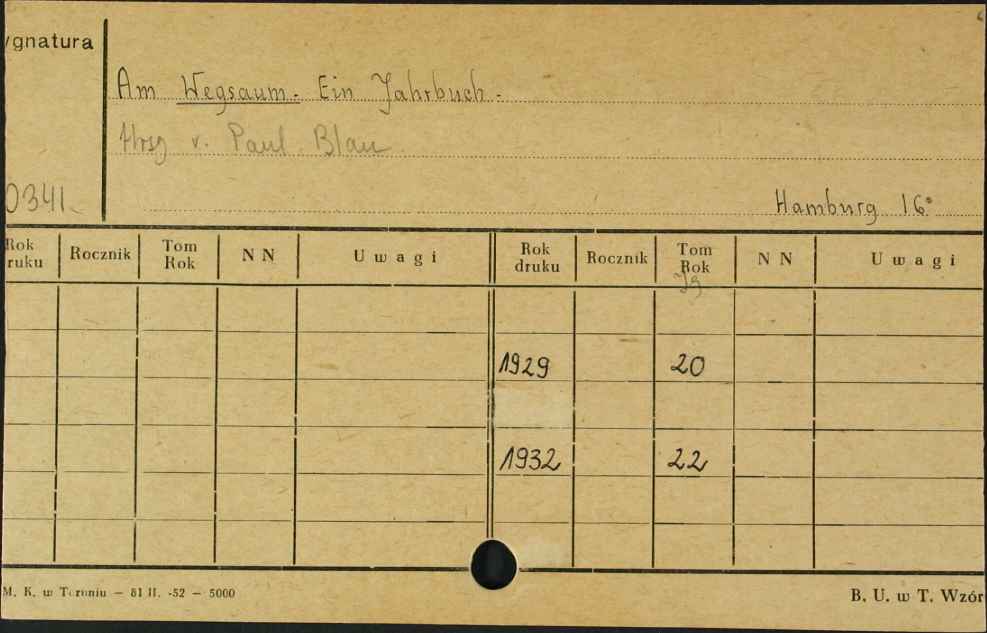 ygnatura
Am Wegsaum. Ein Jahrbuch.
Hrsg v. Paul Blau
0341
Hamburg 16°
Rok ruku Rocznik Tom Rok N N U w a g i Rok druku Rocznik Tom Rok N N U w a g i
Jg
1929 20
1932 22
M. K. w Toruniu — 81 II. -52 — 5000
B. U. w T. Wzór